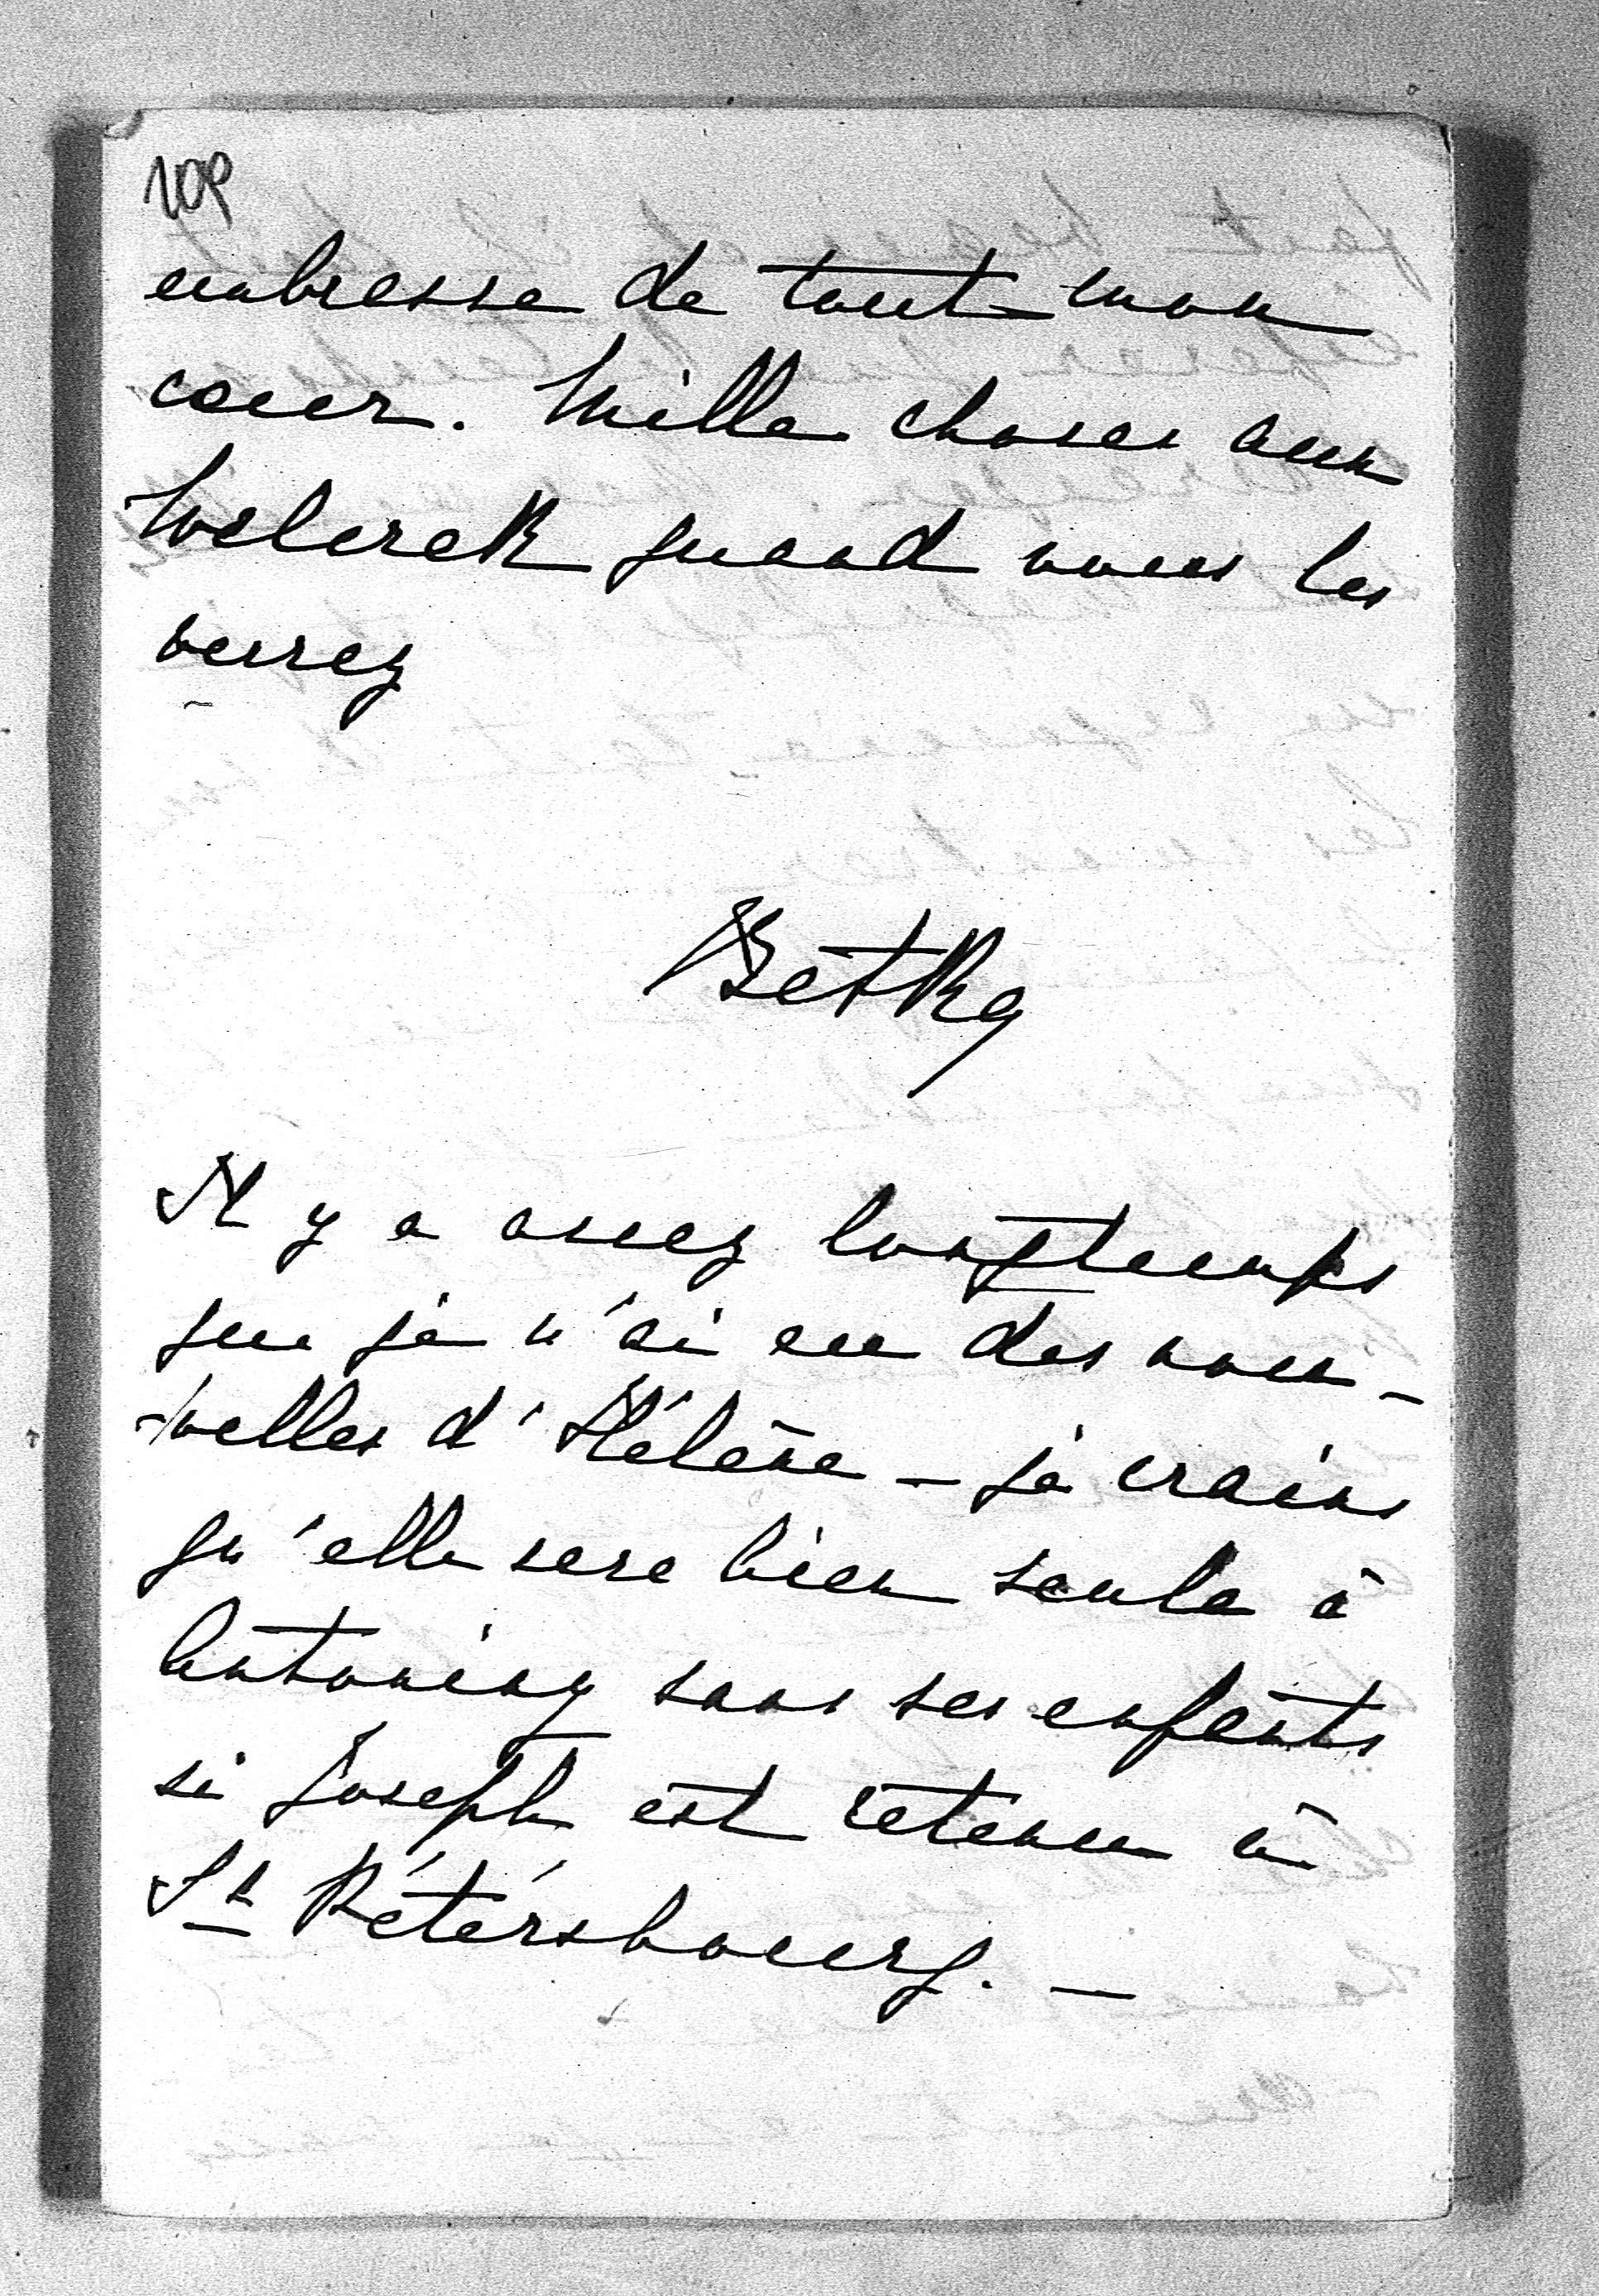 embrasse de tout mon
coeur. Mille choses aux
quand vous les
verrez
Betka
Il y a assez longtemps
que je n'ai eu des nou-
-velles d'Hélène - je crains
qu'elle sera bien seule à
Antoniny sans ses enfants
si Joseph est retenu à
St Pétersbourg. -